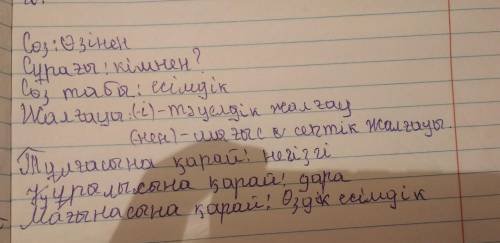 Сөз: Өзінен
Сұрағы: кімнен?
Сөз табы: есімдік
Жалғауы: (-і)-тәуелдік жалғау
(нен)-шығыс септік жалғауы.
Тұлғасына қарай: негізгі
Құрылысына қарай: дара
Мағынасына қарай: Өздік есімдік